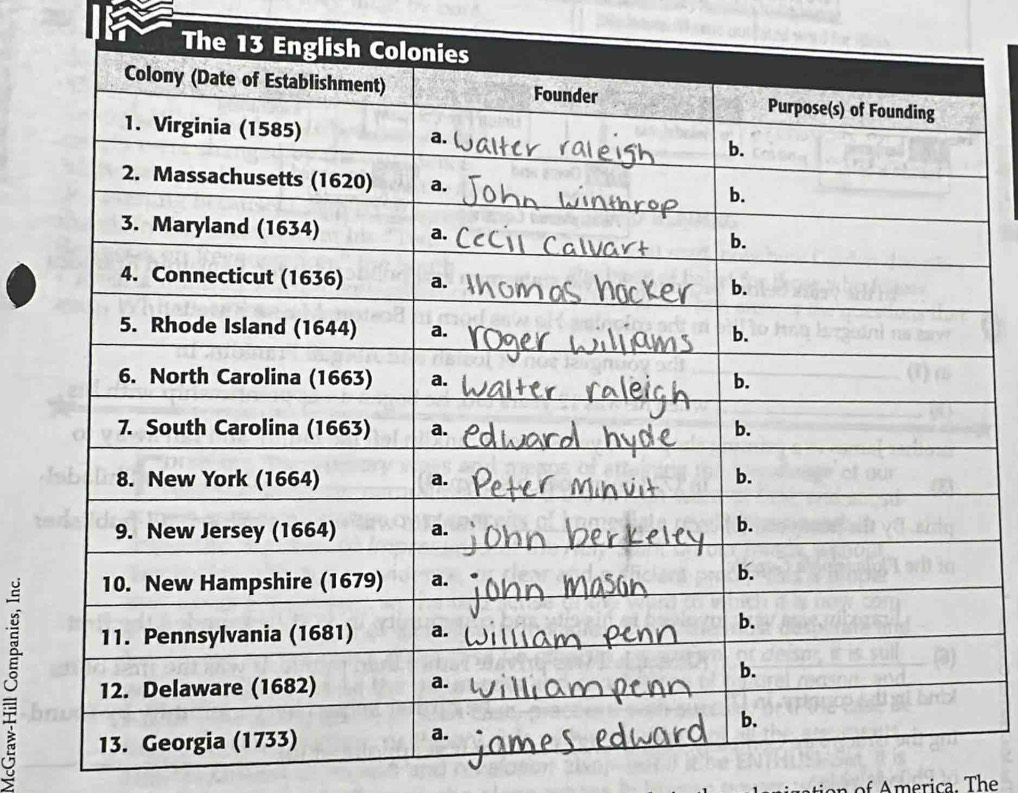 The 13 English Colonies
Colony (Date of Establishment) Founder Purpose(s) of Founding
1. Virginia (1585) a. Walter raleigh b.
2. Massachusetts (1620) a. John Winthrop b.
3. Maryland (1634) a. Cecil Calvart b.
4. Connecticut (1636) a. thomas hocker b.
5. Rhode Island (1644) a. roger williams b.
6. North Carolina (1663) a. walter raleigh b.
7. South Carolina (1663) a. edward hyde b.
8. New York (1664) a. Peter Minvit b.
9. New Jersey (1664) a. john berkeley b.
10. New Hampshire (1679) a. john mason b.
11. Pennsylvania (1681) a. William penn b.
12. Delaware (1682) a. william penn b.
13. Georgia (1733) a. james edward b.
of America. The
McGraw-Hill Companies, Inc.